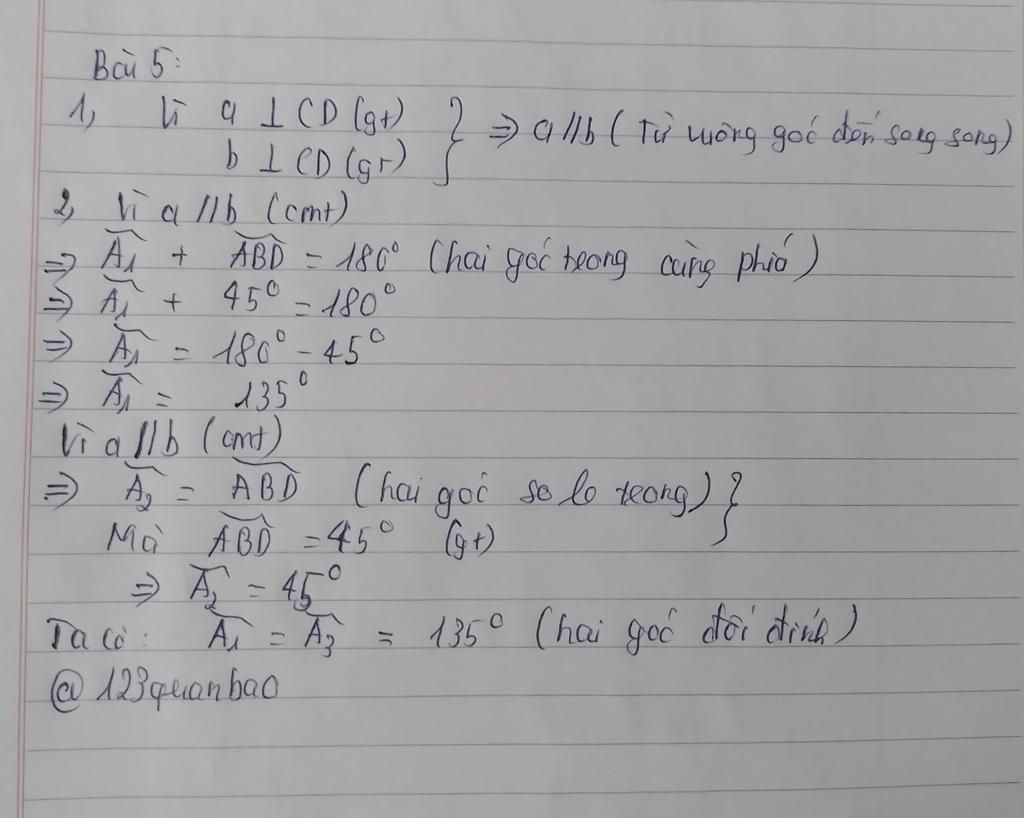 Bài 5:
1, Vì a ⊥ CD (gt) } ⇒ a // b (Từ vuông góc đến song song)
b ⊥ CD (gt)
2, Vì a // b (cmt)
⇒ Â₁ + ABD̂ = 180° (hai góc trong cùng phía)
⇒ Â₁ + 45° = 180°
⇒ Â₁ = 180° - 45°
⇒ Â₁ = 135°
Vì a // b (cmt)
⇒ Â₂ = ABD̂ (hai góc so le trong) }
Mà ABD̂ = 45° (gt)
⇒ Â₂ = 45°
Ta có: Â₁ = Â₃ = 135° (hai góc đối đỉnh)
@123quanbao